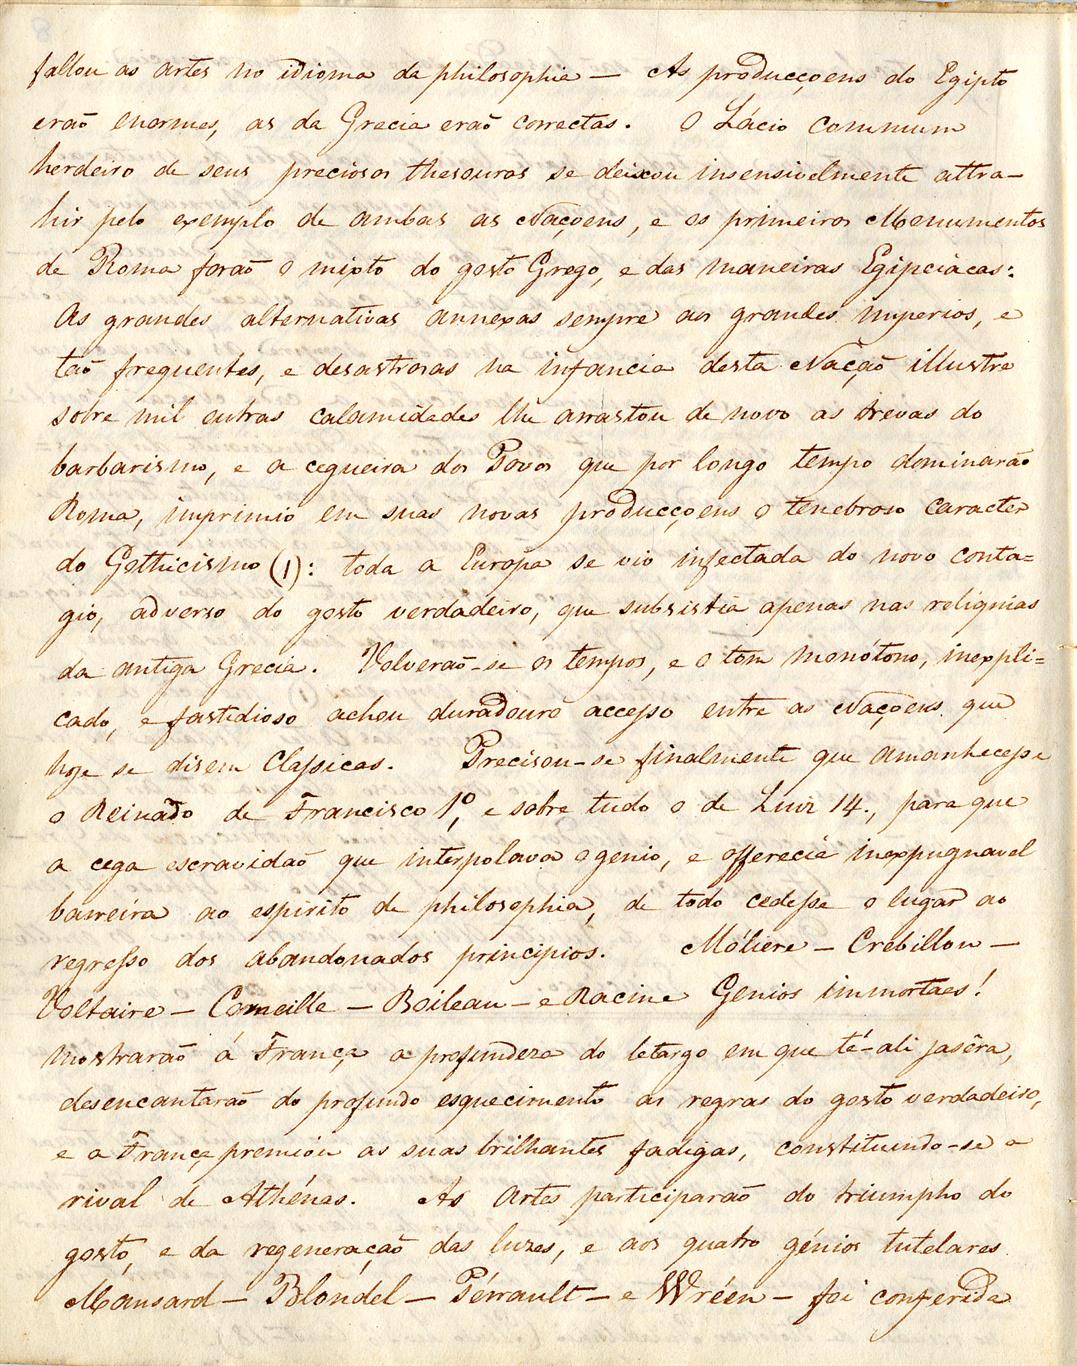 8
fallou as artes no idioma da philosophia — As producçoens do Egipto
eraõ enormes, as da Grecia eraõ correctas. O Lácio commum
herdeiro de seus preciosos thesouros se deixou insensivelmente attra-
hir pelo exemplo de ambas as Naçoens, e os primeiros Monumentos
de Roma foraõ o mixto do gosto Grego, e das maneiras Egipciacas:
As grandes alternativas annexas sempre aos grandes imperios, e
taõ frequentes, e desastrosas na infancia desta Naçaõ illustre
sobre mil outras calamidades lhe arrastou de novo as trevas do
barbarismo, e a cegueira dos Povos que por longo tempo dominaraõ
Roma, imprimio em suas novas producçoens o tenebroso caracter
do Gothicismo (1): toda a Europa se vio infectada do novo conta=
gio, adverso do gosto verdadeiro, que subsistia apenas nas reliquias
da antiga Grecia. Volveraõ-se os tempos, e o tom monótono, inexpli=
cado, e fastidioso achou duradouro accesso entre as Naçoens que
hoje se disem Classicas. Precisou-se finalmente que amanhecesse
o Reinado de Francisco 1º, e sobre tudo o de Luiz 14., para que
a cega escravidaõ que interpolava o genio, e offerecia inexpugnavel
barreira ao espirito de philosophia, de todo cedesse o lugar ao
regresso dos abandonados principios. Móliere — Crébillon —
Voltaire — Corneille — Boileau — e Racine Genios immortaes!
mostraraõ á França a profundeza do letargo em que té-ali jasêra,
desencantaraõ do profundo esquecimento as regras do gosto verdadeiro,
e a França premiou as suas brilhantes fadigas, constituindo-se a
rival de Athénas. As Artes participaraõ do triumpho do
gosto, e da regeneraçaõ das luzes, e aos quatro génios tutelares
Mansard — Blondel — Pérrault — e Wréen — foi conferida